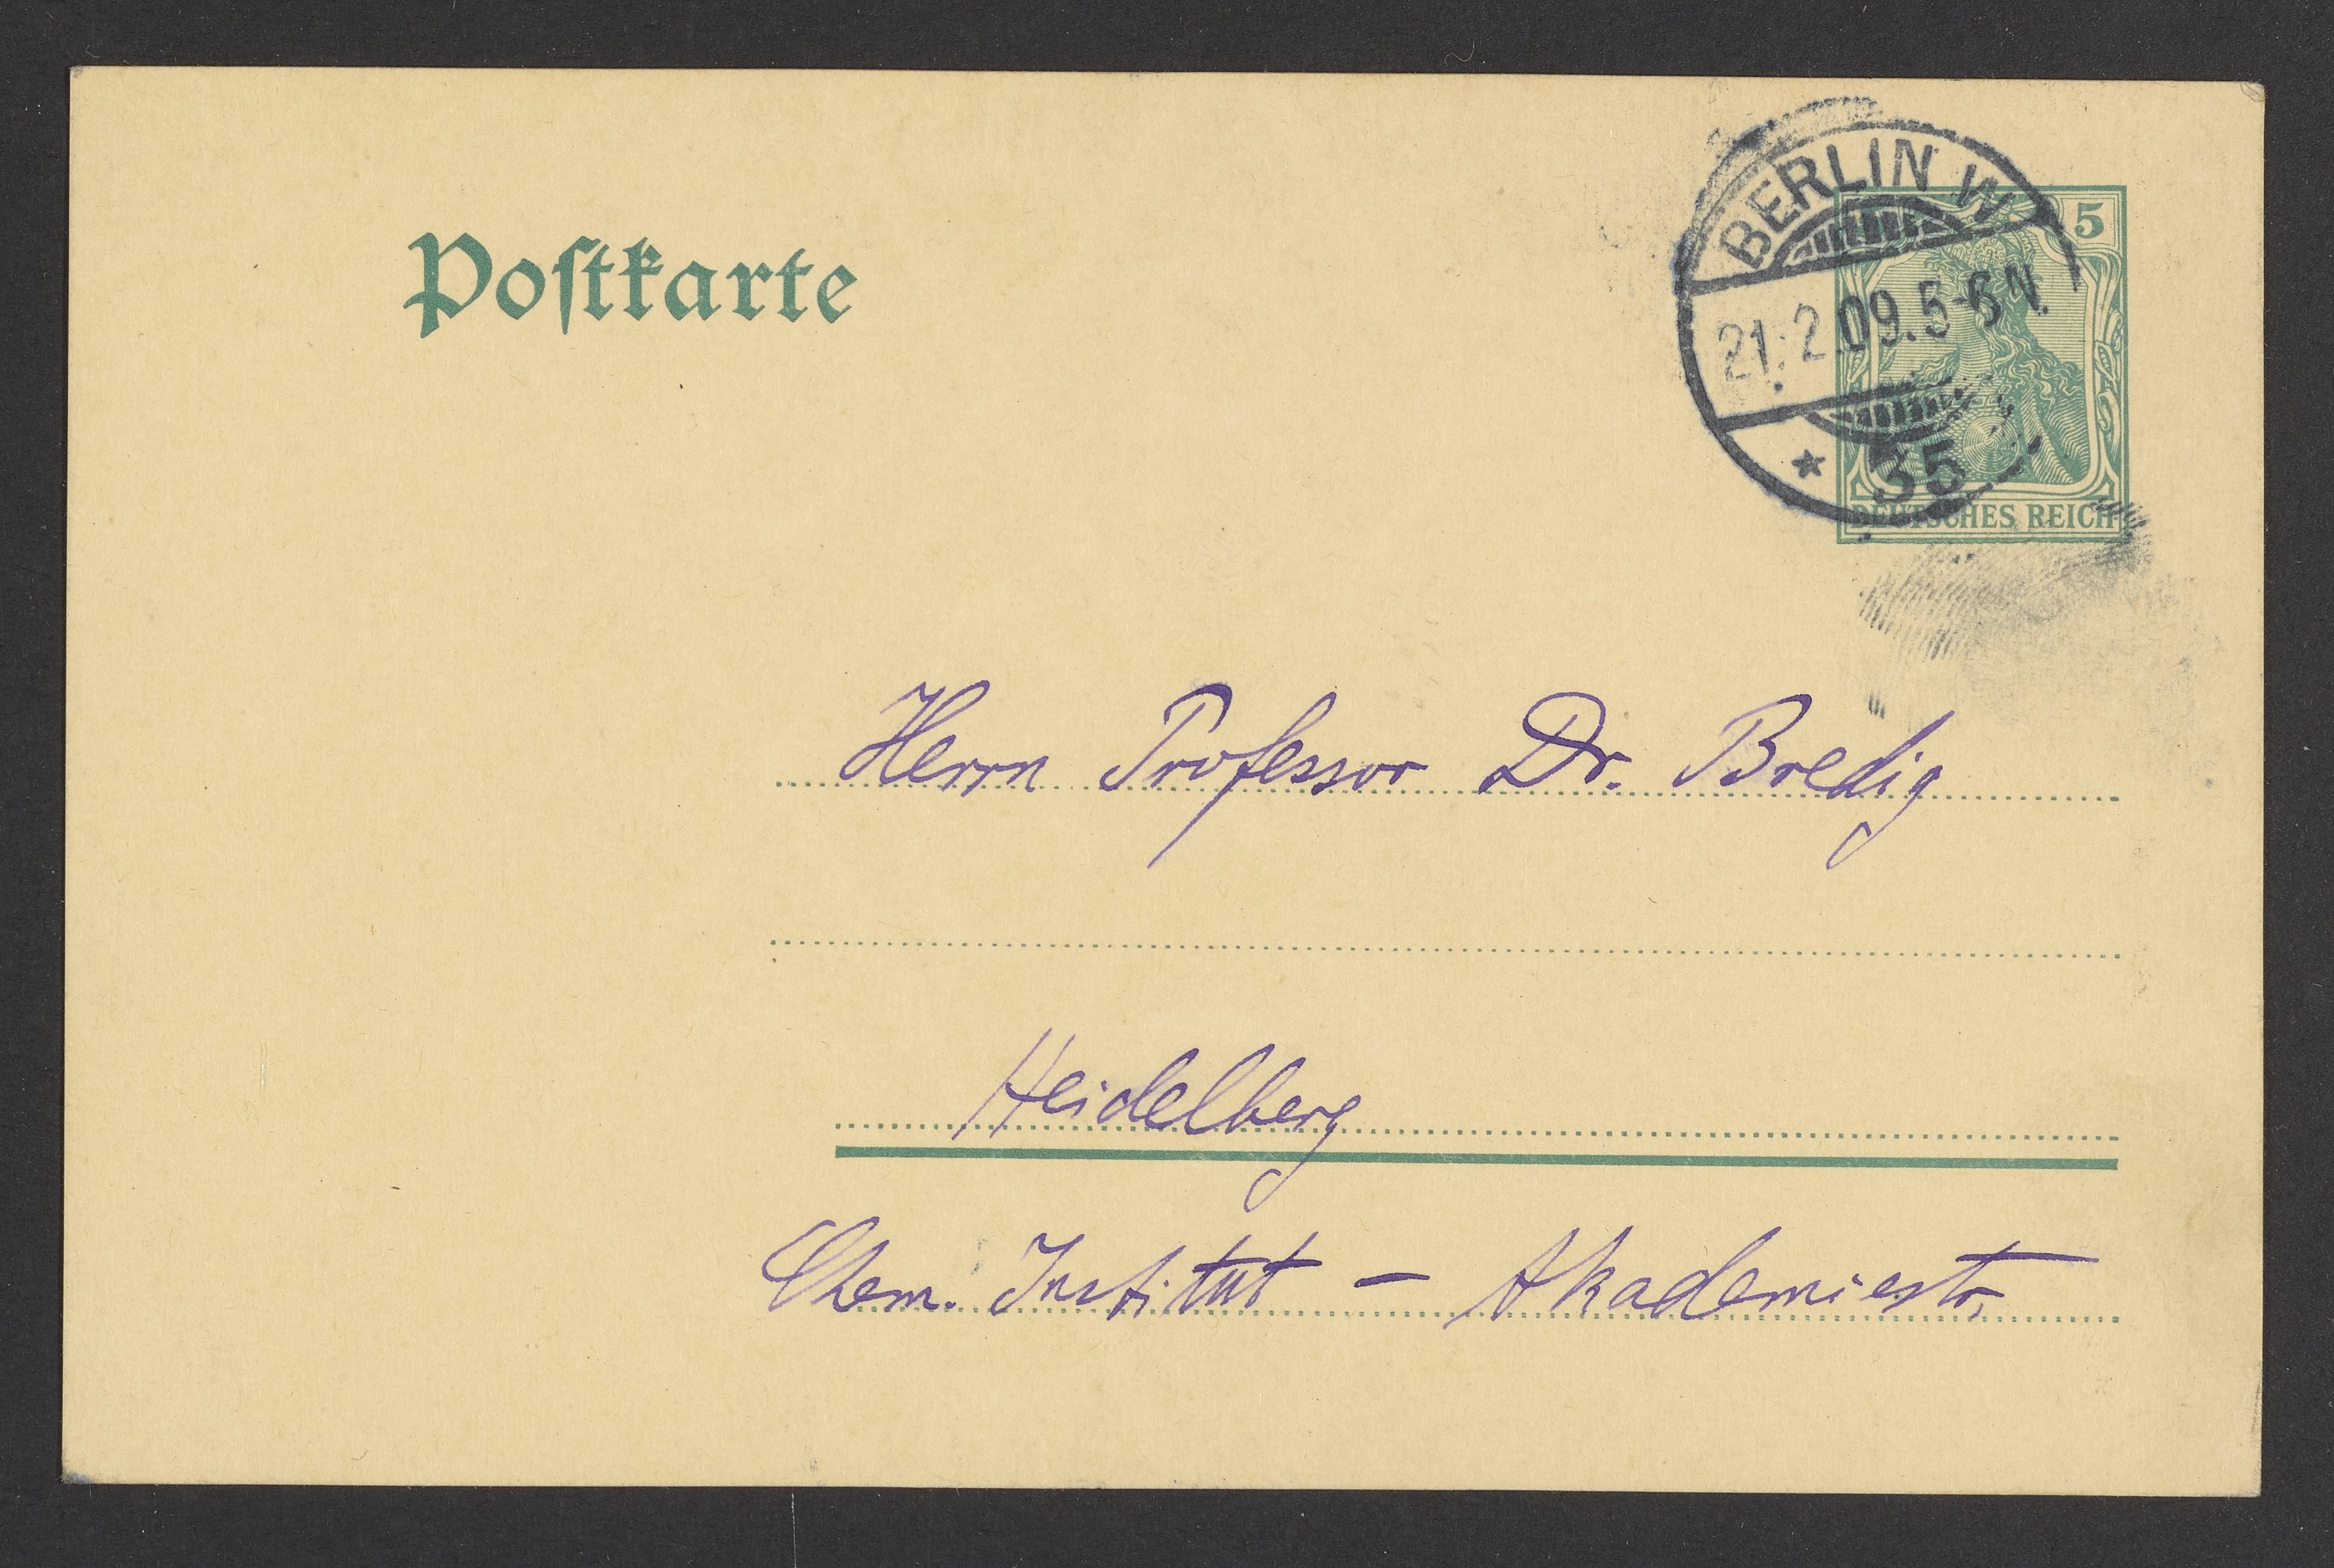 Postkarte
BERLIN W
21.2.09.5-6 N.
* 35
5
DEUTSCHES REICH
Herrn Professor Dr. Bredig
Heidelberg
Chem. Institut – Akademiestr.